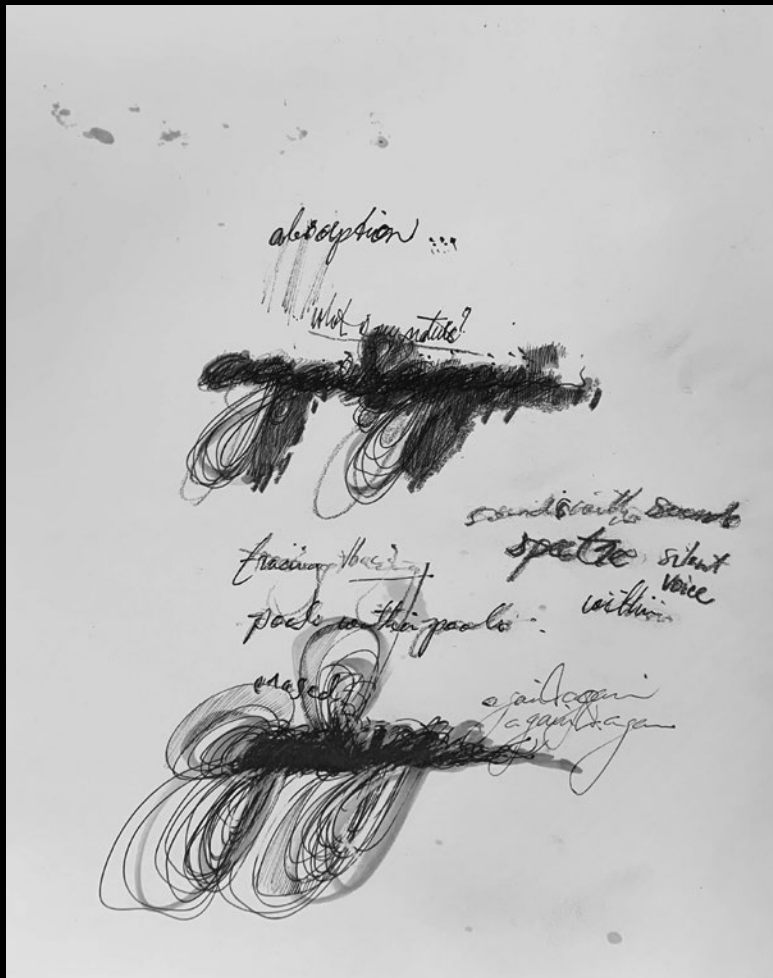 absorption ...
what is my nature?
sounds with sounds
silent
voice
within
tracing tracing
pools within pools
erased
again & again
again & again